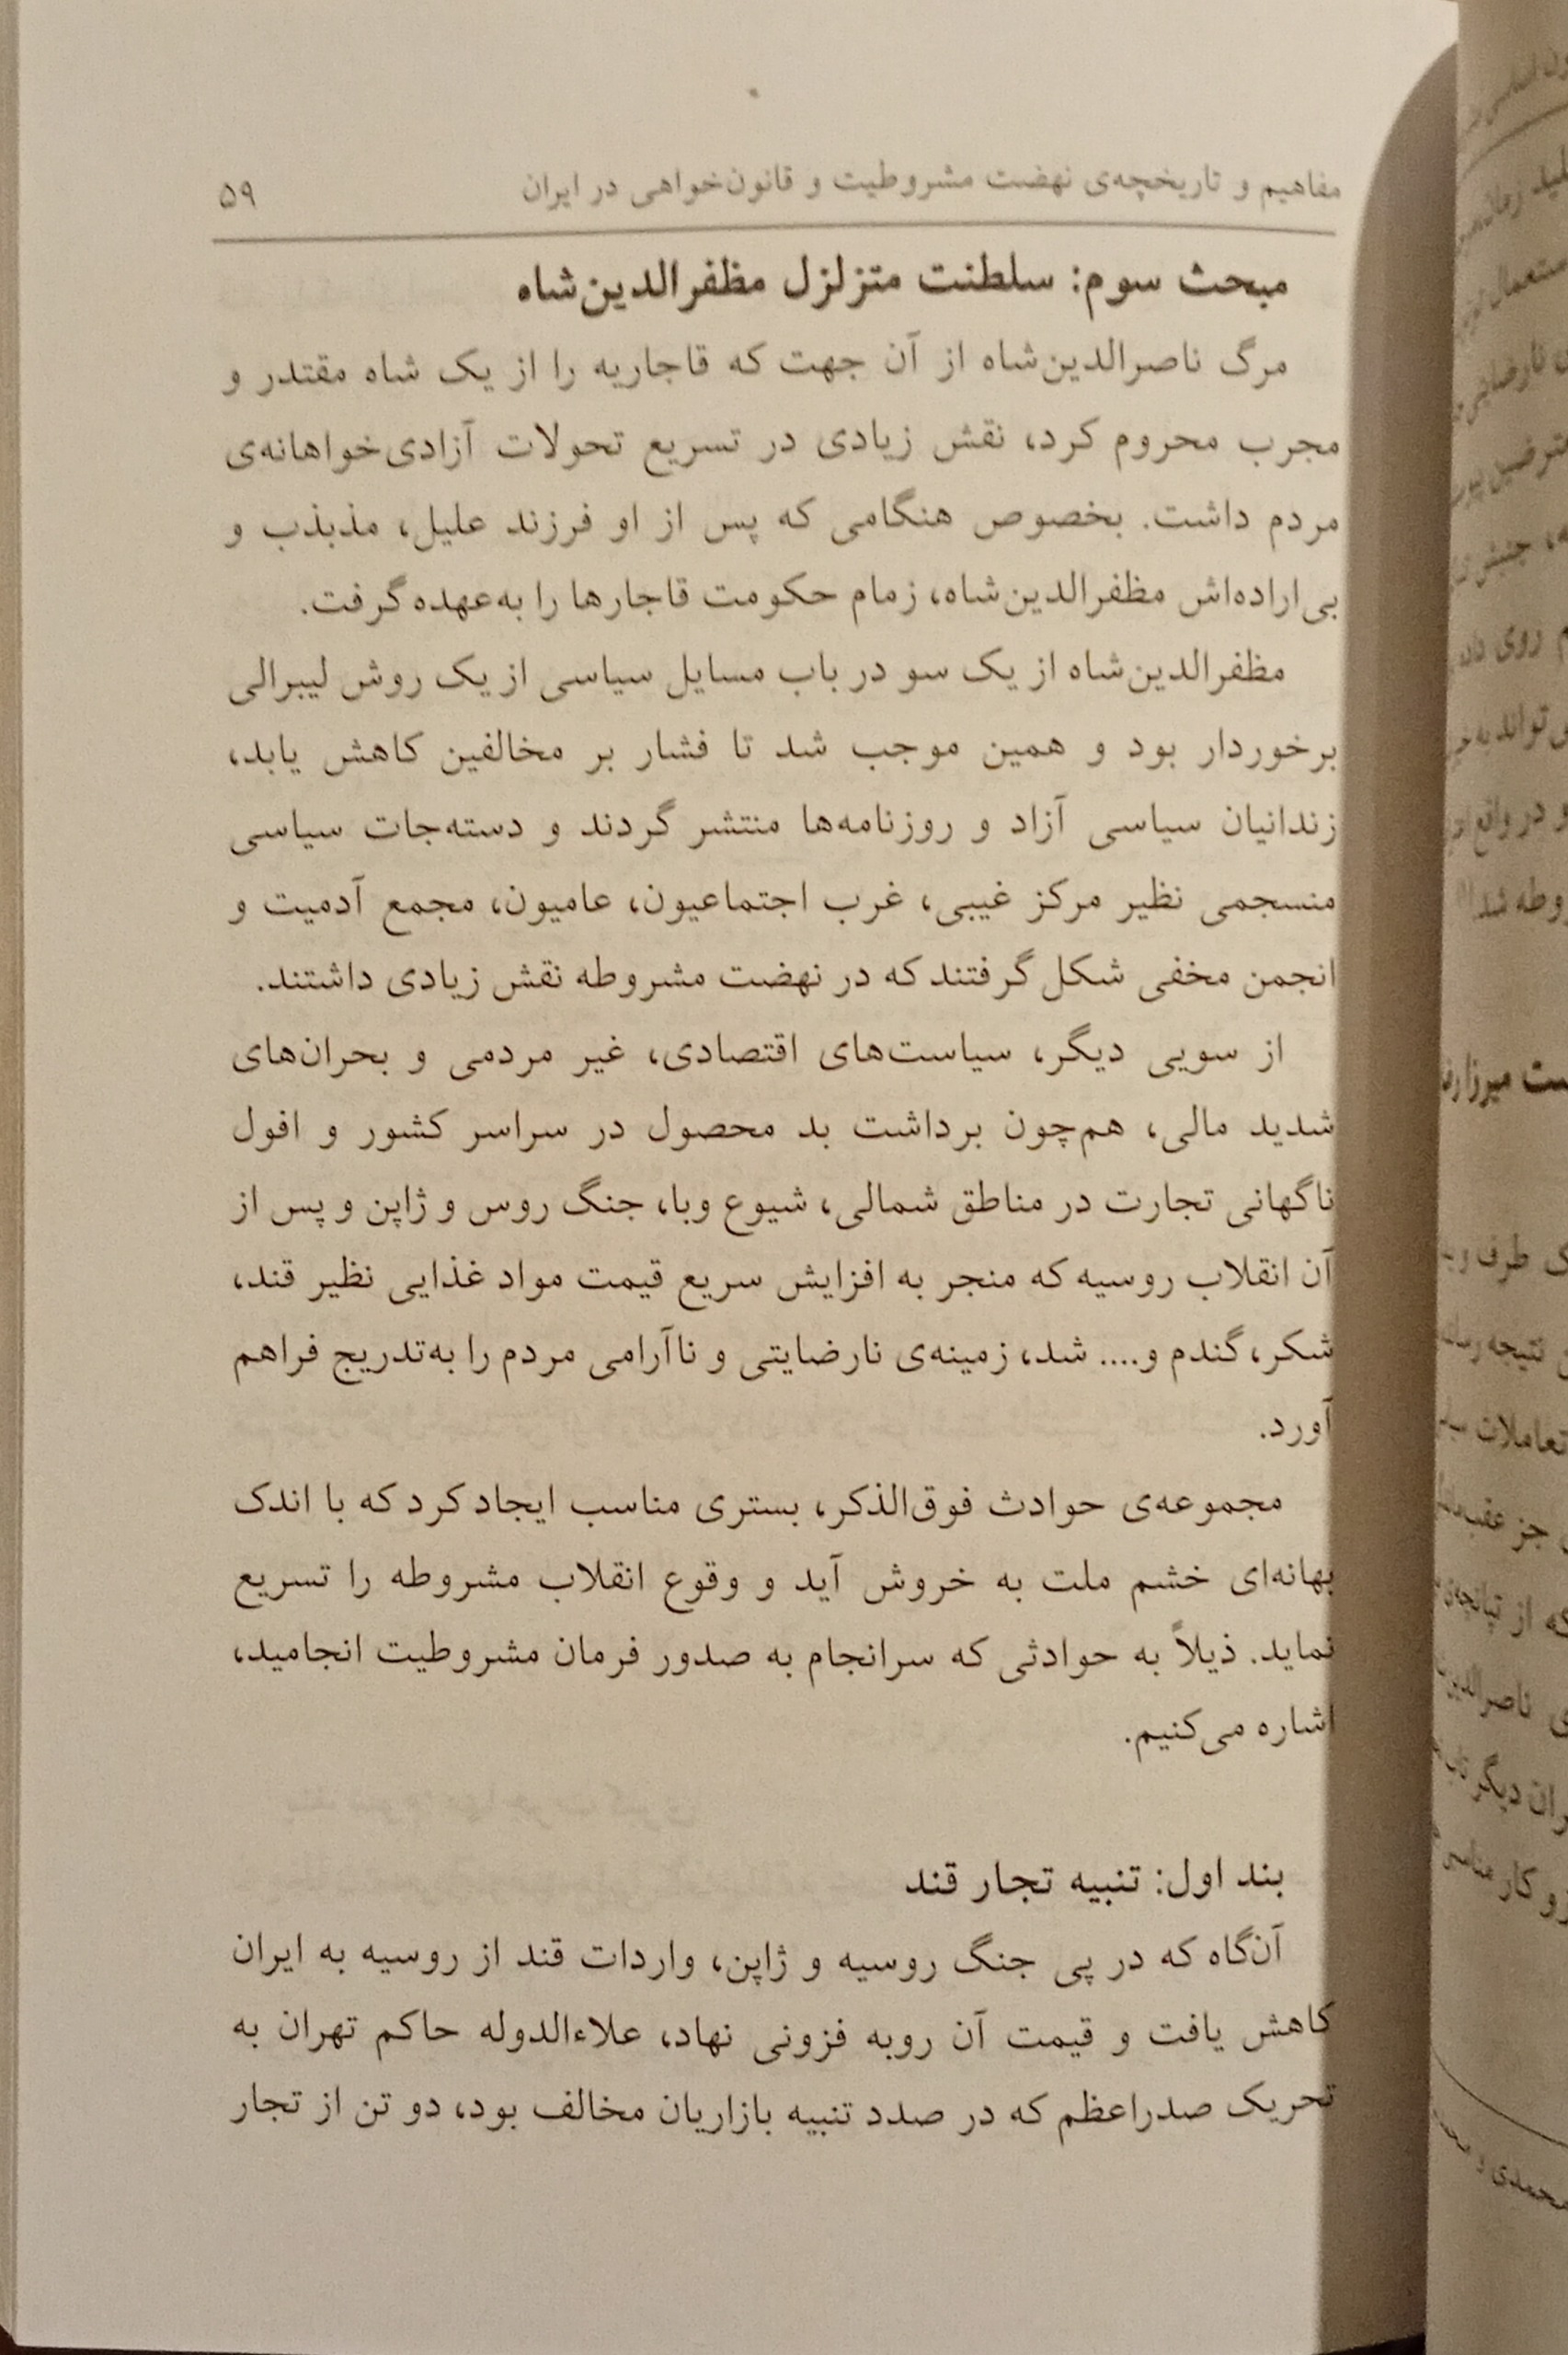 مفاهیم و تاریخچه‌ی نهضت مشروطیت و قانون‌خواهی در ایران ۵۹
مبحث سوم: سلطنت متزلزل مظفرالدین‌شاه
مرگ ناصرالدین‌شاه از آن جهت که قاجاریه را از یک شاه مقتدر و
مجرب محروم کرد، نقش زیادی در تسریع تحولات آزادی‌خواهانه‌ی
مردم داشت. بخصوص هنگامی که پس از او فرزند علیل، مذبذب و
بی‌اراده‌اش مظفرالدین‌شاه، زمام حکومت قاجارها را به‌عهده گرفت.
مظفرالدین‌شاه از یک سو در باب مسایل سیاسی از یک روش لیبرالی
برخوردار بود و همین موجب شد تا فشار بر مخالفین کاهش یابد،
زندانیان سیاسی آزاد و روزنامه‌ها منتشر گردند و دسته‌جات سیاسی
منسجمی نظیر مرکز غیبی، غرب اجتماعیون، عامیون، مجمع آدمیت و
انجمن مخفی شکل گرفتند که در نهضت مشروطه نقش زیادی داشتند.
از سویی دیگر، سیاست‌های اقتصادی، غیر مردمی و بحران‌های
شدید مالی، هم‌چون برداشت بد محصول در سراسر کشور و افول
ناگهانی تجارت در مناطق شمالی، شیوع وبا، جنگ روس و ژاپن و پس از
آن انقلاب روسیه که منجر به افزایش سریع قیمت مواد غذایی نظیر قند،
شکر، گندم و.... شد، زمینه‌ی نارضایتی و ناآرامی مردم را به‌تدریج فراهم
آورد.
مجموعه‌ی حوادث فوق‌الذکر، بستری مناسب ایجاد کرد که با اندک
بهانه‌ای خشم ملت به خروش آید و وقوع انقلاب مشروطه را تسریع
نماید. ذیلاً به حوادثی که سرانجام به صدور فرمان مشروطیت انجامید،
اشاره می‌کنیم.
بند اول: تنبیه تجار قند
آن‌گاه که در پی جنگ روسیه و ژاپن، واردات قند از روسیه به ایران
کاهش یافت و قیمت آن روبه فزونی نهاد، علاءالدوله حاکم تهران به
تحریک صدراعظم که در صدد تنبیه بازاریان مخالف بود، دو تن از تجار